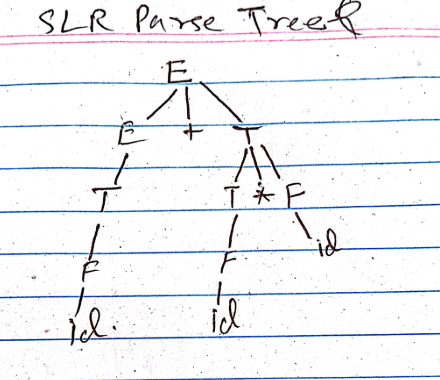 SLR Parse Tree
E
E + T
T T * F
F F id
id. id